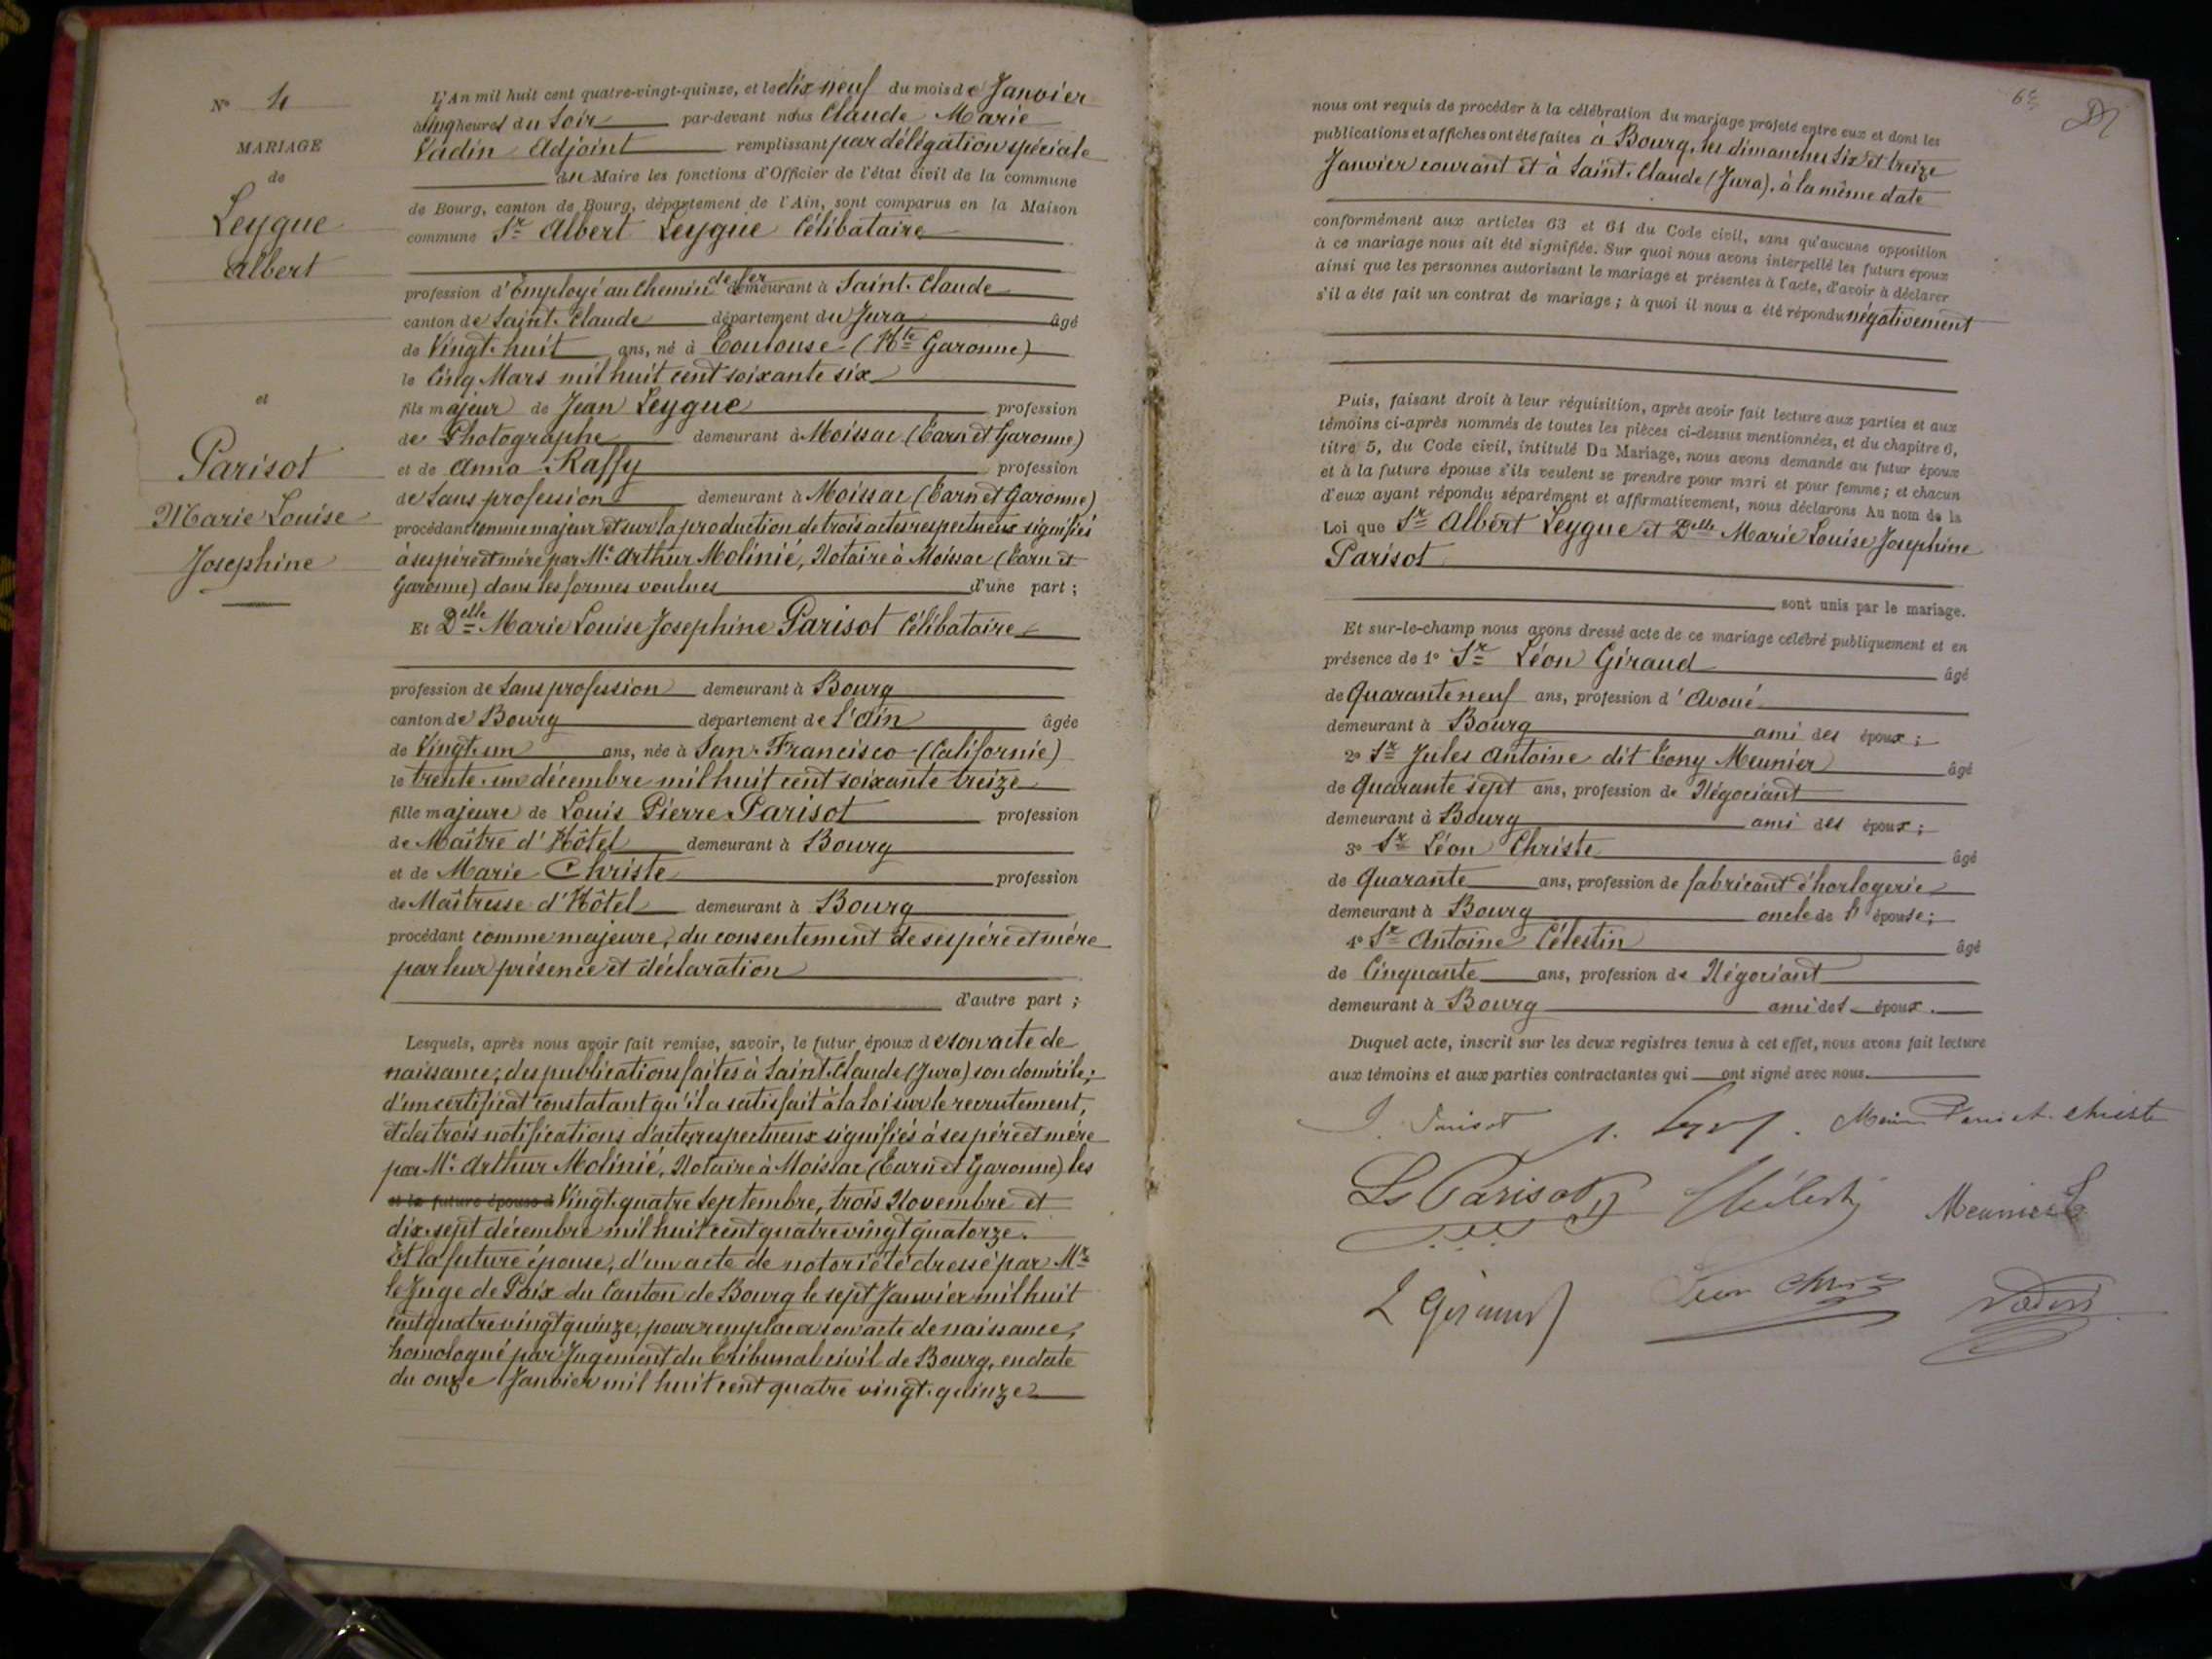 N° 4
MARIAGE
de
Leygue
Albert
et
Parisot
Marie Louise
Josephine
L'An mil huit cent quatre-vingt-quinze, et le dix neuf du mois de Janvier
à cinq heures du Soir par-devant nous Claude Marie
Vadin Adjoint remplissant par délégation spéciale
du Maire les fonctions d'Officier de l'état civil de la commune
de Bourg, canton de Bourg, département de l'Ain, sont comparus en la Maison
commune Sr Albert Leygue Célibataire
profession d'Employé au Chemin de fer demeurant à Saint-Claude
canton de Saint-Claude département du Jura âgé
de Vingt-huit ans, né à Toulouse (Hte Garonne)
le Cinq Mars mil huit cent soixante six
fils majeur de Jean Leygue profession
de Photographe demeurant à Moissac (Tarn et Garonne)
et de Anna Raffy profession
de Sans profession demeurant à Moissac (Tarn et Garonne)
procédant comme majeur et sur la production de trois actes respectueux signifiés
à ses père et mère par Me Arthur Molinié, Notaire à Moissac (Tarn et
Garonne) dans les formes voulues d'une part ;
Et Delle Marie Louise Josephine Parisot Célibataire
profession de Sans profession demeurant à Bourg
canton de Bourg département de l'Ain âgée
de Vingt-un ans, née à San-Francisco (Californie)
le trente-un décembre mil huit cent soixante treize
fille majeure de Louis Pierre Parisot profession
de Maître d'Hôtel demeurant à Bourg
et de Marie Christe profession
de Maîtresse d'Hôtel demeurant à Bourg
procédant comme majeure, du consentement de ses père et mère
par leur présence et déclaration
d'autre part ;
Lesquels, après nous avoir fait remise, savoir, le futur époux de son acte de
naissance; des publications faites à Saint-Claude (Jura) son domicile;
d'un certificat constatant qu'il a satisfait à la loi sur le recrutement,
et des trois notifications d'actes respectueux signifiés à ses père et mère
par Me Arthur Molinié, Notaire à Moissac (Tarn et Garonne) les
et la future épouse d Vingt-quatre Septembre, trois Novembre et
dix-sept décembre mil huit cent quatre vingt quatorze.
Et la future épouse, d'un acte de notoriété dressé par Mr
le Juge de Paix du Canton de Bourg le sept Janvier mil huit
cent quatre vingt quinze, pour remplacer son acte de naissance,
homologué par Jugement du Tribunal civil de Bourg, en date
du onze Janvier mil huit cent quatre vingt-quinze
nous ont requis de procéder à la célébration du mariage projeté entre eux et dont les
publications et affiches ont été faites à Bourg, les dimanches Six et treize
Janvier courant et à Saint-Claude (Jura), à la même date
conformément aux articles 63 et 64 du Code civil, sans qu'aucune opposition
à ce mariage nous ait été signifiée. Sur quoi nous avons interpellé les futurs époux
ainsi que les personnes autorisant le mariage et présentes à l'acte, d'avoir à déclarer
s'il a été fait un contrat de mariage ; à quoi il nous a été répondu négativement
Puis, faisant droit à leur réquisition, après avoir fait lecture aux parties et aux
témoins ci-après nommés de toutes les pièces ci-dessus mentionnées, et du chapitre 6,
titre 5, du Code civil, intitulé Du Mariage, nous avons demandé au futur époux
et à la future épouse s'ils veulent se prendre pour mari et pour femme ; et chacun
d'eux ayant répondu séparément et affirmativement, nous déclarons Au nom de la
Loi que Sr Albert Leygue et Delle Marie Louise Josephine
Parisot
sont unis par le mariage.
Et sur-le-champ nous avons dressé acte de ce mariage célébré publiquement et en
présence de 1° Sr Léon Giraud âgé
de Quarante neuf ans, profession d'Avoué
demeurant à Bourg ami des époux ;
2° Sr Jules Antoine dit Tony Meunier âgé
de Quarante sept ans, profession de Négociant
demeurant à Bourg ami des époux ;
3° Sr Léon Christe âgé
de Quarante ans, profession de fabricant d'horlogerie
demeurant à Bourg oncle de l'épouse ;
4° Sr Antoine Célestin âgé
de Cinquante ans, profession de Négociant
demeurant à Bourg ami des époux.
Duquel acte, inscrit sur les deux registres tenus à cet effet, nous avons fait lecture
aux témoins et aux parties contractantes qui ont signé avec nous.
Parisot Marie Parisot Christe
Ls Parisot Célestin Meunier
L Giraud Léon Christe Vadin